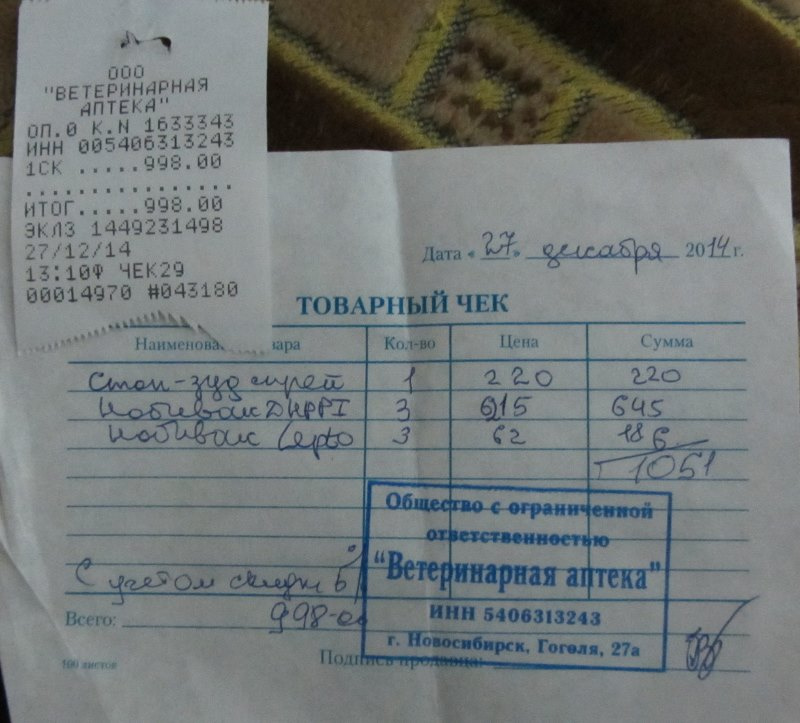 ООО
"ВЕТЕРИНАРНАЯ
АПТЕКА"
ОП.0 К.N 1633343
ИНН 005406313243
1СК .....998.00
.................
ИТОГ.....998.00
ЭКЛЗ 1449231498
27/12/14
13:10Ф ЧЕК29
00014970 #043180
Дата «27» декабря 2014 г.
ТОВАРНЫЙ ЧЕК
Кол-во Цена Сумма
Стоп-зуд спрей 1 220 220
Нобивак DHPPI 3 215 645
Нобивак Lepto 3 62 186
1051
Общество с ограниченной
ответственностью
"Ветеринарная аптека"
ИНН 5406313243
г. Новосибирск, Гоголя, 27а
С учетом скидки
Всего: 998-00
Подпись продавца:
100 листов